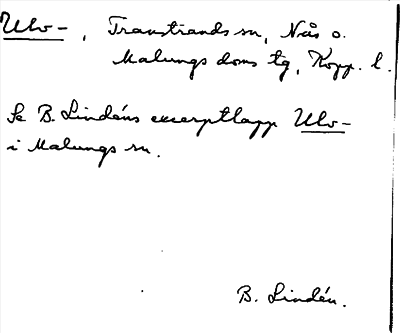 Ulv-, Transtrands sn, Nås o.
Malungs doms tg, Kopp. l.
Se B. Lindéns excerptlapp Ulv-
i Malungs sn.
B. Lindén.